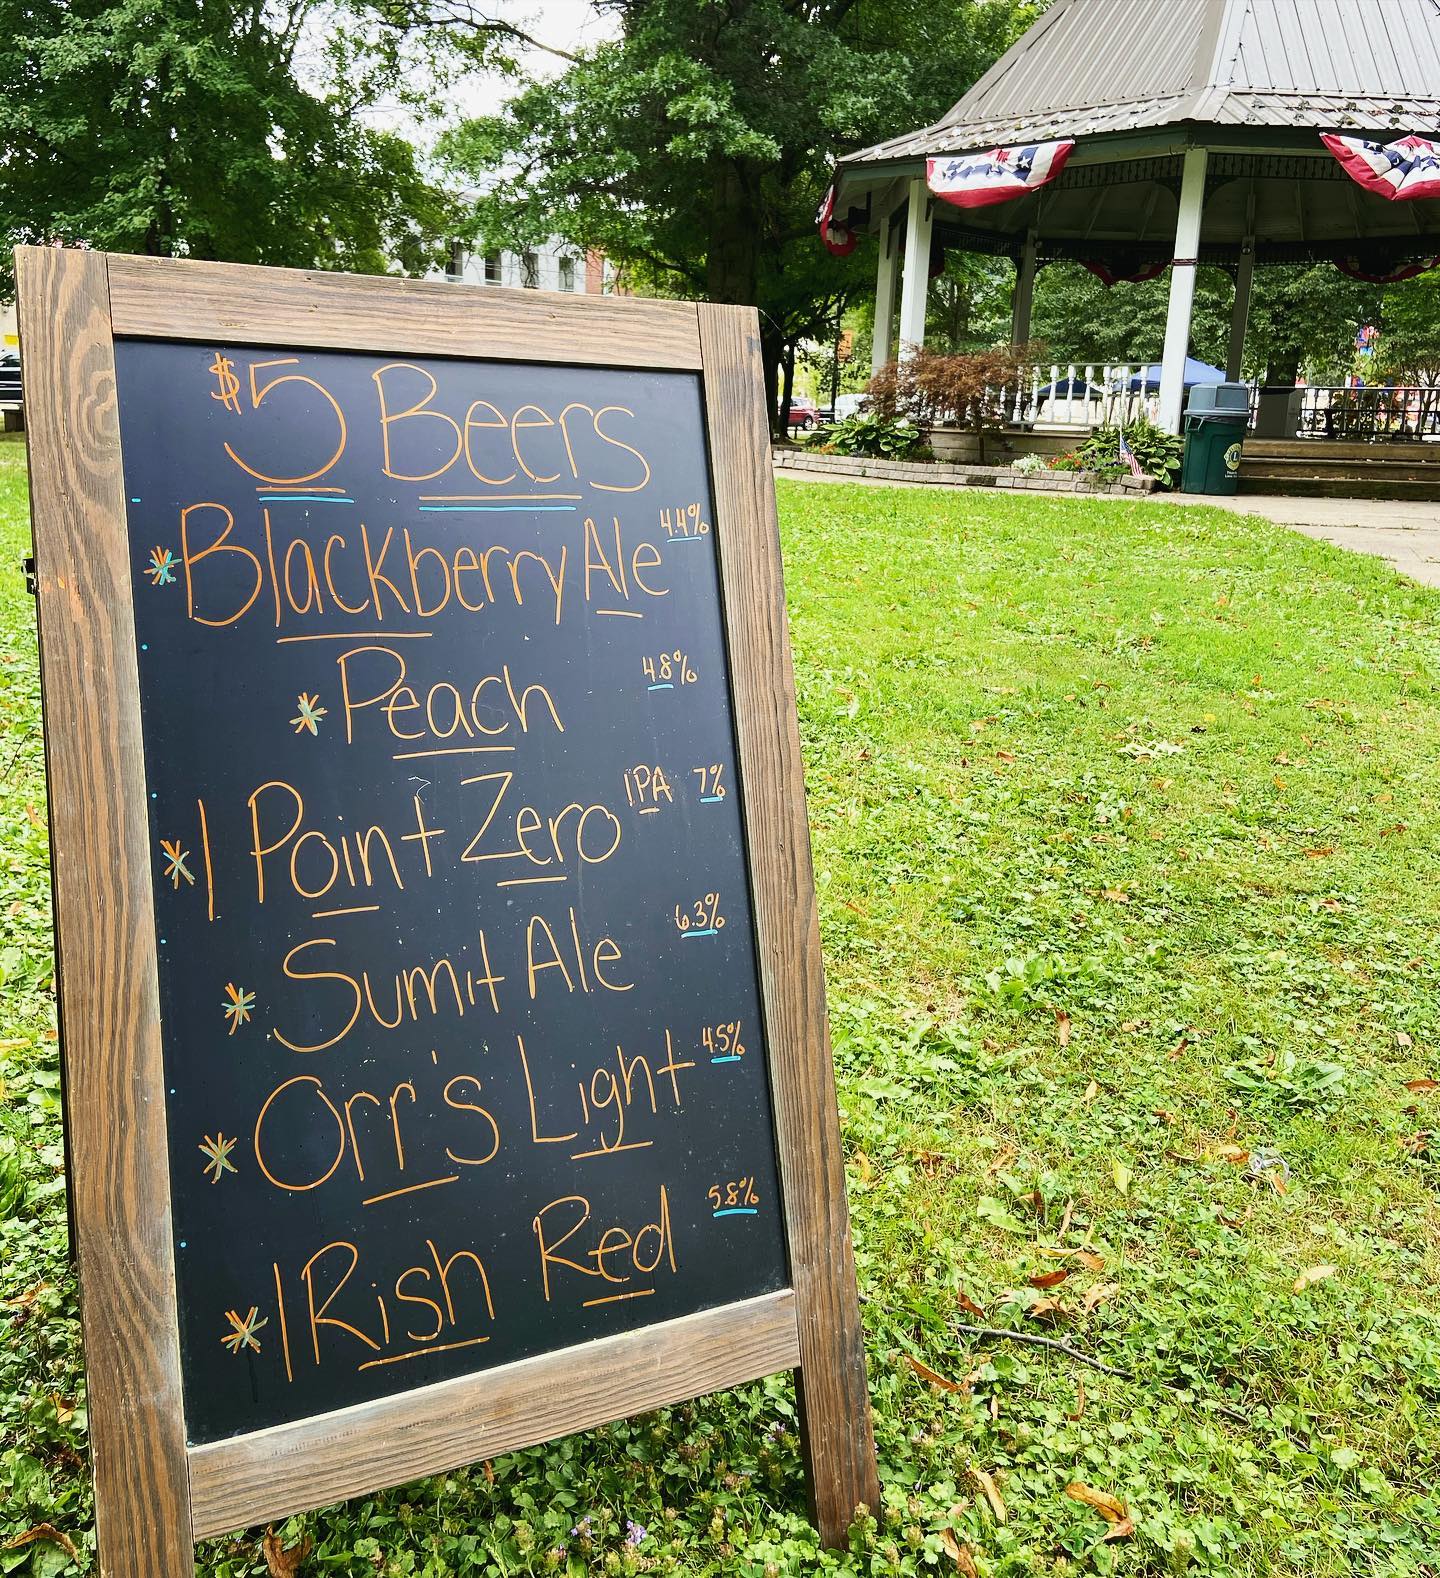 $5 Beers
*Blackberry Ale 4.4%
*Peach 4.8%
*1 Point Zero IPA 7%
*Sumit Ale 6.3%
*Orr's Light 4.5%
*IRish Red 5.8%